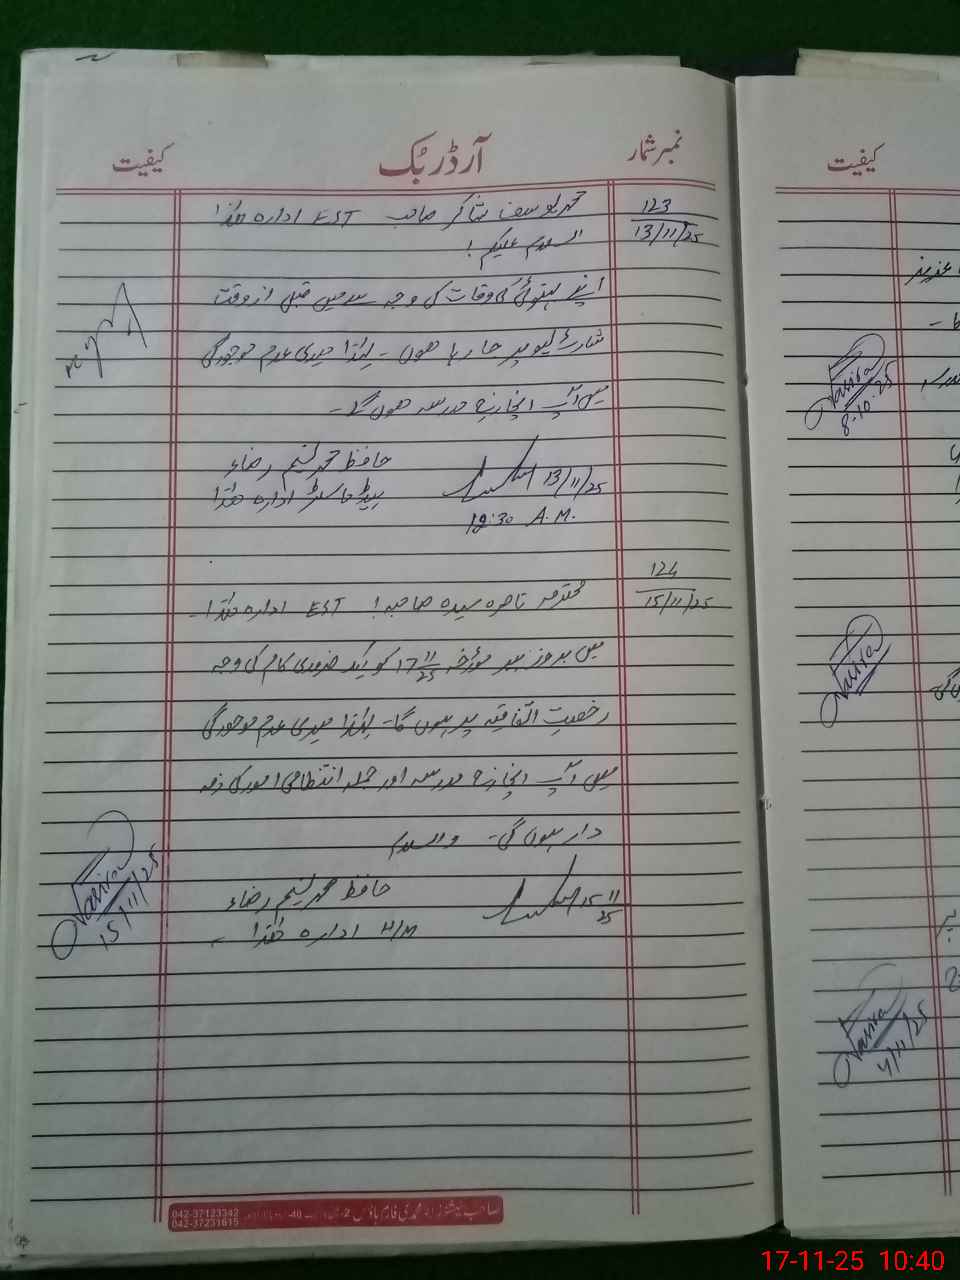 نمبر شمار
آرڈر بُک
کیفیت
123
13/11/25
محمد یوسف شاکر صاحب EST ادارہ ھٰذا
السلام علیکم !
اپنے بہنوئی کی وفات کی وجہ سے میں قبل از وقت
شارٹ لیو پر جا رہا ھوں - لہٰذا میری عدم موجودگی
میں آپ انچارج مدرسہ ھوں گے -
حافظ محمد نسیم رضاء
13/11/25
ہیڈ ماسٹر ادارہ ھٰذا
12:30 A.M.
124
15/11/25
محترمہ ناصرہ سیدہ صاحبہ ! EST ادارہ ھٰذا -
میں بروز پیر مورٔخہ 17 11/25 کو ایک ضروری کام کی وجہ
رخصت اتفاقیہ پر ہوں گا - لہٰذا میری عدم موجودگی
میں آپ انچارج مدرسہ اور جملہ انتظامی امور کی ذمہ
دار ہوں گی - والسلام
حافظ محمد نسیم رضاء
15 11/25
H/M ادارہ ھٰذا -
Nasira
15/11/25
042-37123342
042-37231615
کیفیت
عزیز
Nasira
8-10-25
Nasira
Nasira
4/11/25
17-11-25 10:40